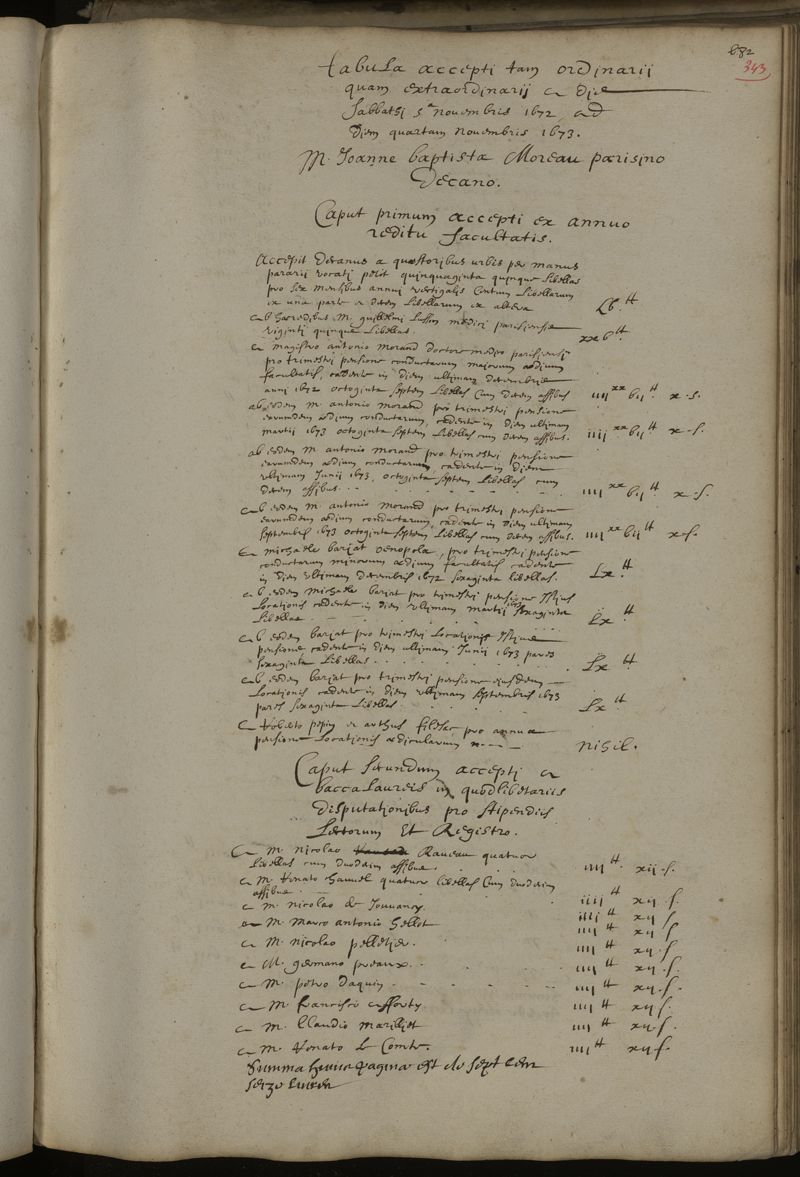 682
343
Tabula accepti tam ordinarii
quam extraordinarij a Die
Sabbathi 5a Novembris 1672 ad
Diem quartam Novembris 1673.
M. Joanne baptista Moreau parisino
Decano.
Caput primum accepti ex annuo
reditu facultatis.
Accepit Decanus a quæstoribus urbis per manus
pararii vocati petit quinquaginta quinque Libellas
pro sex mensibus annui vectigalis Centum Libellarum
ex una parte et decem Libellarum ex altera Lb. tt
ab hæredibus M. guillelmi Lusson medici parisiensis
viginti quinque Libellas. xxb tt
a magistro antonio Morand doctore medico parisiensi
pro trimestri pensione conductarum majorum ædium
facultatis, cadente in diem ultimam decembris
anni 1672 octoginta septem Libellas Cum decem assibus iiij xx bij tt x s.
ab eodem M. antonio morand pro trimestri pensione
earumdem ædium conductarum, cadente in diem ultimam
martii 1673 octoginta septem Libellas cum decem assibus. iiij xx bij tt x s.
ab eodem M. antonio morand pro trimestri pensione
earumdem ædium conductarum, cadente in diem
ultimam Junii 1673, octoginta septem Libellas cum
decem assibus. iiij xx bij tt x s.
ab eodem M. antonio Morand pro trimestri pensione
earumdem ædium conductarum, cadente in diem ultimam
septembris 1673 octoginta septem Libellas cum decem assibus. iiij xx bij tt x s.
a michaele bariat oenopola, pro trimestri pensione
conductarum minorum ædium facultatis cadente
in diem ultimam decembris 1672 sexaginta libellas. Lx tt
ab eodem Michaele bariat pro trimestri pensione istius
Locationis cadente in diem ultimam martii sexaginta
Libellas Lx tt
ab eodem bariat pro trimestri Locationis istius
pensione cadente in diem ultimam Junii 1673 pares
sexaginta Libellas Lx tt
ab eodem bariat pro trimestri pensione ejusdem
Locationis cadente in diem ultimam septembris 1673
pares sexaginta Libellas. Lx tt
a Roberto pepin et arthus pro annua
pensione Locationis ædicularum nihil.
Caput secundum accepti a
baccalaureis in quodlibetariis
disputationibus pro stipendiis
Lectorum Et Registro.
a M. nicolao Raveau quatuor
Libellas cum duodecim assibus iiij tt xij s.
a M. Renato hamel quatuor libellas Cum duodecim
assibus iiij tt xij s.
a M. nicolao de Jouvancy. iiij tt xij s
a M. Marco antonio hellot iiij tt xij s
a M. nicolao pelletier. iiij tt xij s.
a M. germano preaux. iiij tt xij s.
a M. petro Daquin. iiij tt xij s.
a M. francisco afforty iiij tt xij s.
a M. Claudio iiij tt xij s.
a M. Renato le Comte. iiij tt xij s.
Summa huius paginæ est de sept cent
seize livres